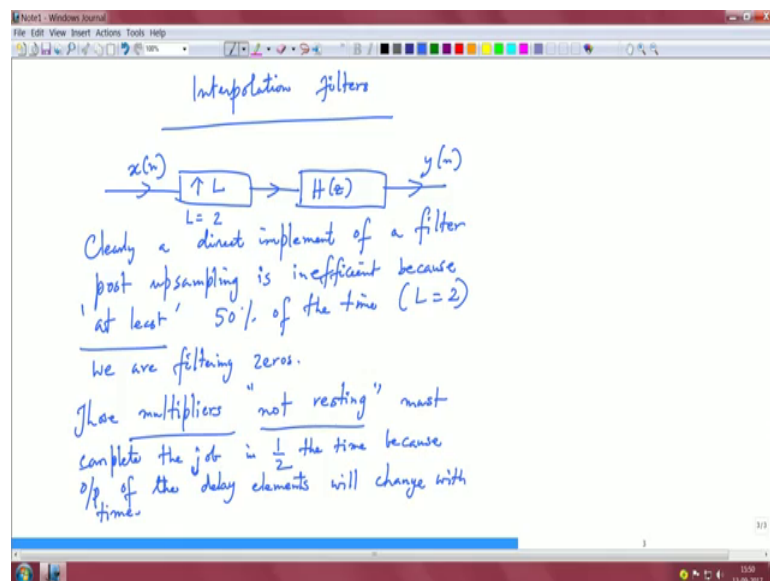 Note1 - Windows Journal
File Edit View Insert Actions Tools Help
100%
Interpolation filters
x(n) ↑ L H(z) y(n)
L = 2
Clearly a direct implement of a filter
post upsampling is inefficient because
'at least' 50% of the time (L = 2)
we are filtering zeros.
Those multipliers "not resting" must
complete the job in 1/2 the time because
o/p of the delay elements will change with
time.
3/3
3
15:50